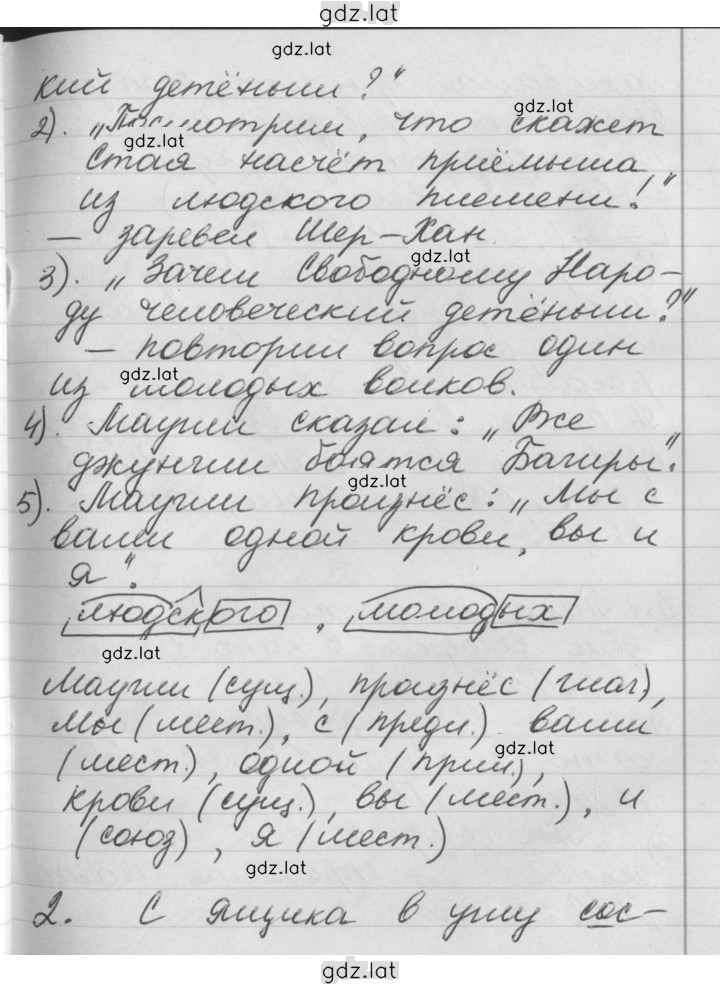 gdz.lat
gdz.lat
кий детёныш?"
gdz.lat
2). „Посмотрим, что скажет
gdz.lat
Стая насчёт приёмыша
из людского племени!"
— заревел Шер-Хан.
gdz.lat
3). „Зачем Свободному Наро-
ду человеческий детёныш?"
— повторил вопрос один
gdz.lat
из молодых волков.
4). Маугли сказал: „Все
джунгли боятся Багиры".
gdz.lat
5). Маугли произнёс: „Мы с
вами одной крови, вы и
я".
людского, молодых
gdz.lat
Маугли (сущ.), произнёс (глаг),
Мы (мест.), с (предл.) вами
gdz.lat
(мест.), одной (прил.),
крови (сущ.), вы (мест.), и
(союз), я (мест.)
gdz.lat
2. С ящика в углу сос-
gdz.lat